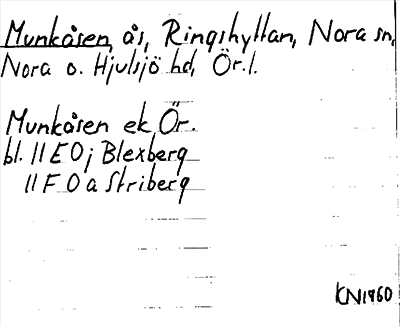 Munkåsen, ås, Ringshyttan, Nora sn,
Nora o. Hjulsjö hd, Ör.l.
Munkåsen ek Ör.
bl. 11 E 0 j Blexberg
11 F 0 a Striberg
KN1960